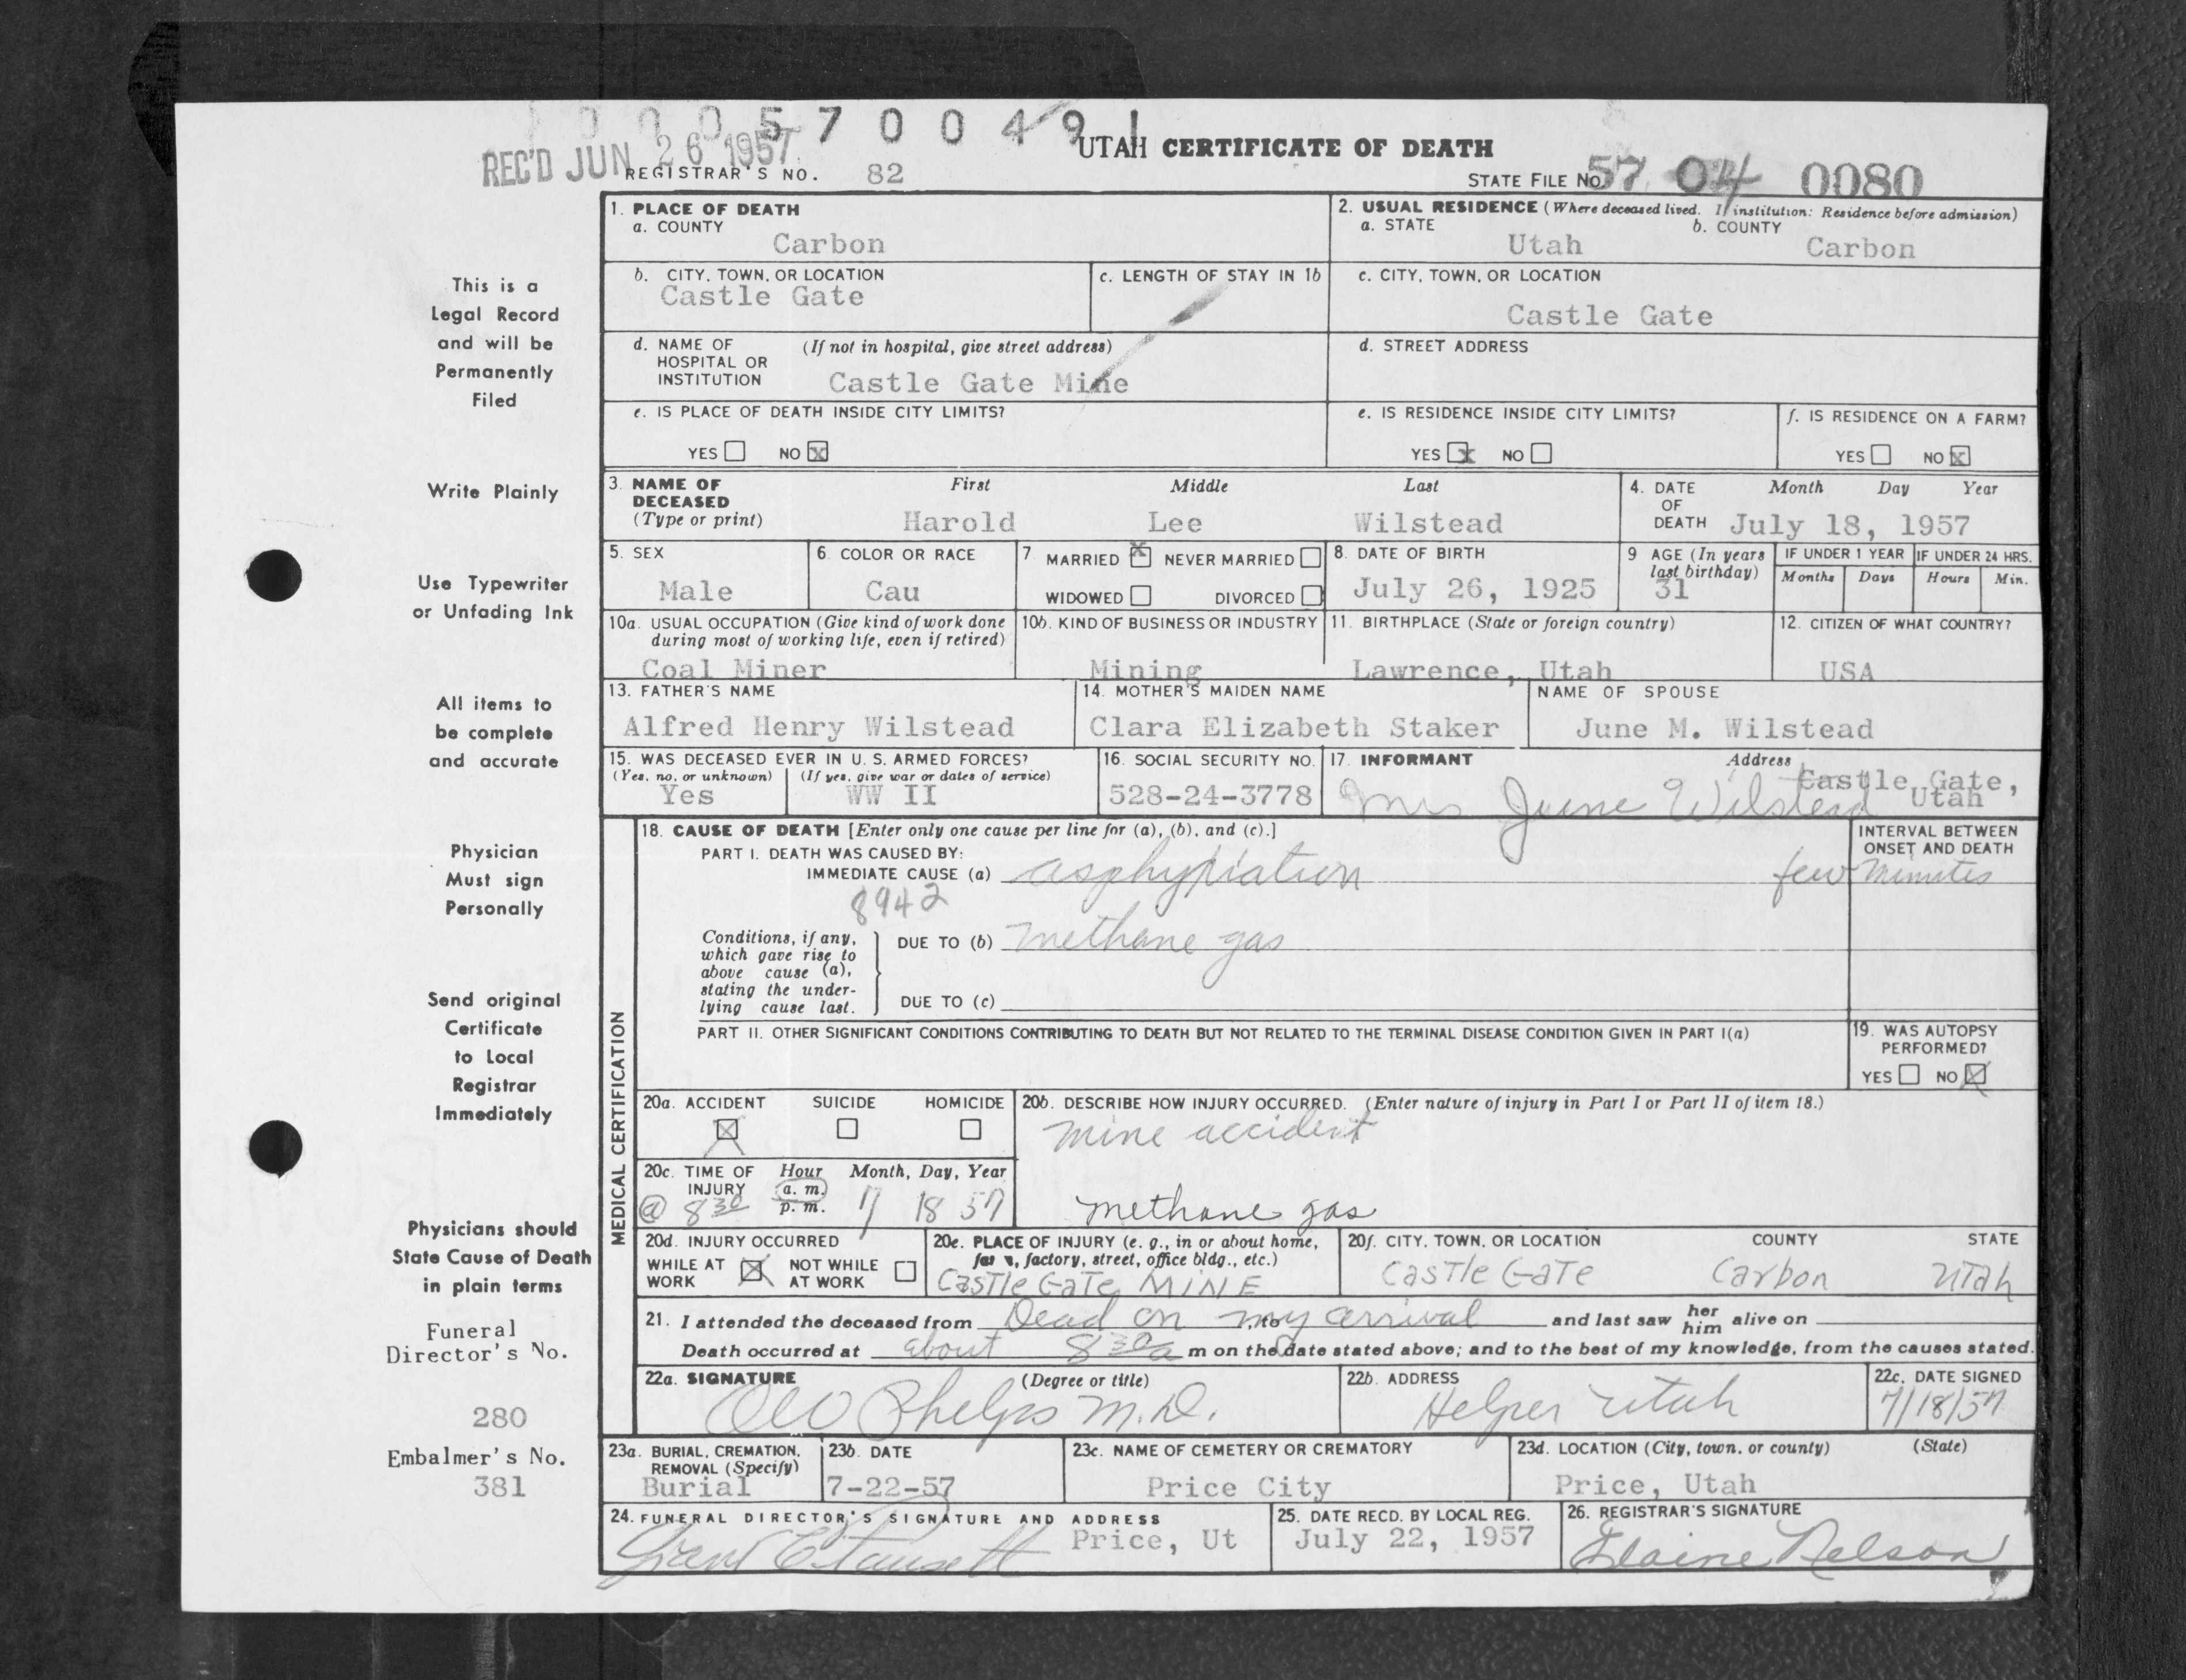 0 0 0 5 7 0 0 4 9 1
REC'D JUN 26 1957
UTAH CERTIFICATE OF DEATH
REGISTRAR'S NO. 82
STATE FILE NO. 57 04 0080
This is a
Legal Record
and will be
Permanently
Filed
Write Plainly
Use Typewriter
or Unfading Ink
All items to
be complete
and accurate
Physician
Must sign
Personally
Send original
Certificate
to Local
Registrar
Immediately
Physicians should
State Cause of Death
in plain terms
Funeral
Director's No.
280
Embalmer's No.
381
1. PLACE OF DEATH
a. COUNTY
Carbon
2. USUAL RESIDENCE (Where deceased lived. If institution: Residence before admission)
a. STATE b. COUNTY
Utah Carbon
b. CITY, TOWN, OR LOCATION
Castle Gate
c. LENGTH OF STAY IN 1b
c. CITY, TOWN, OR LOCATION
Castle Gate
d. NAME OF (If not in hospital, give street address)
HOSPITAL OR
INSTITUTION Castle Gate Mine
d. STREET ADDRESS
e. IS PLACE OF DEATH INSIDE CITY LIMITS?
YES NO X
e. IS RESIDENCE INSIDE CITY LIMITS?
YES X NO
f. IS RESIDENCE ON A FARM?
YES NO X
3. NAME OF First Middle Last
DECEASED
(Type or print) Harold Lee Wilstead
4. DATE Month Day Year
OF
DEATH July 18, 1957
5. SEX
Male
6. COLOR OR RACE
Cau
7. MARRIED X NEVER MARRIED
WIDOWED DIVORCED
8. DATE OF BIRTH
July 26, 1925
9 AGE (In years
last birthday)
31
IF UNDER 1 YEAR IF UNDER 24 HRS.
Months Days Hours Min.
10a. USUAL OCCUPATION (Give kind of work done
during most of working life, even if retired)
Coal Miner
10b. KIND OF BUSINESS OR INDUSTRY
Mining
11. BIRTHPLACE (State or foreign country)
Lawrence, Utah
12. CITIZEN OF WHAT COUNTRY?
USA
13. FATHER'S NAME
Alfred Henry Wilstead
14. MOTHER'S MAIDEN NAME
Clara Elizabeth Staker
NAME OF SPOUSE
June M. Wilstead
15. WAS DECEASED EVER IN U. S. ARMED FORCES?
(Yes, no, or unknown) (If yes, give war or dates of service)
Yes WW II
16. SOCIAL SECURITY NO.
528-24-3778
17. INFORMANT Address
Mrs June Wilstead Castle Gate,
Utah
MEDICAL CERTIFICATION
18. CAUSE OF DEATH [Enter only one cause per line for (a), (b), and (c).]
PART I. DEATH WAS CAUSED BY:
IMMEDIATE CAUSE (a) asphyxiation
INTERVAL BETWEEN
ONSET AND DEATH
few minutes
8942
Conditions, if any,
which gave rise to
above cause (a),
stating the under-
lying cause last.
DUE TO (b) methane gas
DUE TO (c)
PART II. OTHER SIGNIFICANT CONDITIONS CONTRIBUTING TO DEATH BUT NOT RELATED TO THE TERMINAL DISEASE CONDITION GIVEN IN PART I(a)
19. WAS AUTOPSY
PERFORMED?
YES NO X
20a. ACCIDENT SUICIDE HOMICIDE
X
20b. DESCRIBE HOW INJURY OCCURRED. (Enter nature of injury in Part I or Part II of item 18.)
mine accident
methane gas
20c. TIME OF Hour Month, Day, Year
INJURY a. m.
@ 8 30 p. m. 7 18 57
20d. INJURY OCCURRED
WHILE AT WORK X NOT WHILE AT WORK
20e. PLACE OF INJURY (e. g., in or about home,
farm, factory, street, office bldg., etc.)
Castle Gate MINE
20f. CITY, TOWN, OR LOCATION COUNTY STATE
Castle Gate Carbon Utah
21. I attended the deceased from Dead on my arrival , to and last saw her him alive on
Death occurred at about 8 30 a m on the date stated above; and to the best of my knowledge, from the causes stated.
22a. SIGNATURE (Degree or title)
Phelps M.D.
22b. ADDRESS
Helper Utah
22c. DATE SIGNED
7/18/57
23a. BURIAL, CREMATION,
REMOVAL (Specify)
Burial
23b. DATE
7-22-57
23c. NAME OF CEMETERY OR CREMATORY
Price City
23d. LOCATION (City, town, or county) (State)
Price, Utah
24. FUNERAL DIRECTOR'S SIGNATURE AND ADDRESS
Price, Ut
25. DATE RECD. BY LOCAL REG.
July 22, 1957
26. REGISTRAR'S SIGNATURE
Elaine Nelson